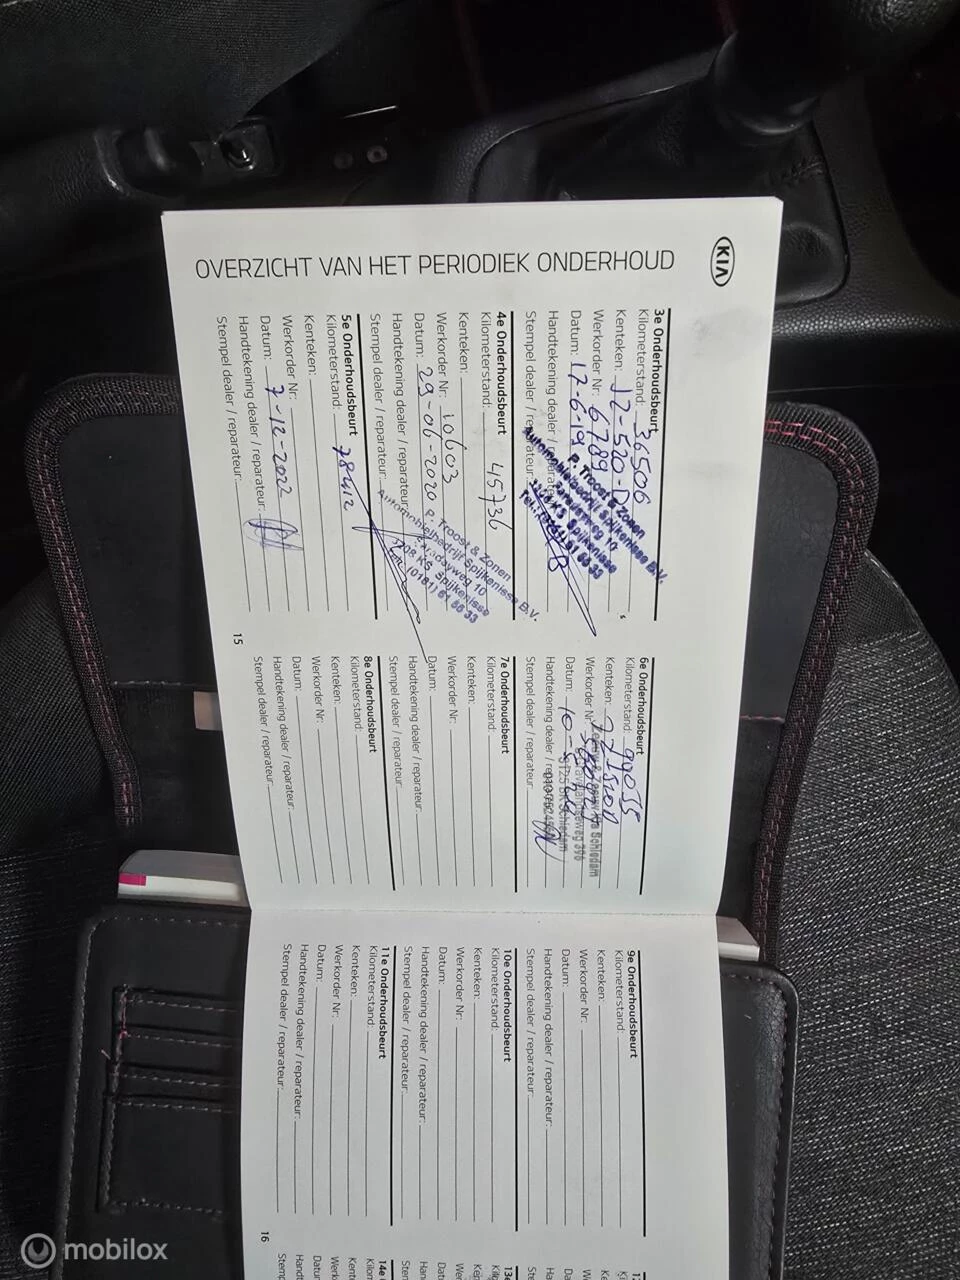 KIA
OVERZICHT VAN HET PERIODIEK ONDERHOUD
3e Onderhoudsbeurt
Kilometerstand: 36506
Kenteken: JZ-520-D
Werkorder Nr: 6789
Datum: 17-6-19
Handtekening dealer / reparateur:
Stempel dealer / reparateur:
P. Troost & Zonen
Automobielbedrijf Spijkenisse B.V.
Faradayweg 10
3208 KS Spijkenisse
4e Onderhoudsbeurt
Kilometerstand: 45736
Kenteken:
Werkorder Nr: 10603
Datum: 29-06-2020
Handtekening dealer / reparateur:
Stempel dealer / reparateur:
P. Troost & Zonen
Automobielbedrijf Spijkenisse B.V.
Faradayweg 10
3208 KS Spijkenisse
5e Onderhoudsbeurt
Kilometerstand: 78412
Kenteken:
Werkorder Nr:
Datum: 7-12-2022
Handtekening dealer / reparateur:
Stempel dealer / reparateur:
15
6e Onderhoudsbeurt
Kilometerstand: 90055
Kenteken:
Werkorder Nr:
Datum: 10-
Handtekening dealer / reparateur:
Stempel dealer / reparateur:
Schiedam
396
Schiedam
7e Onderhoudsbeurt
Kilometerstand:
Kenteken:
Werkorder Nr:
Datum:
Handtekening dealer / reparateur:
Stempel dealer / reparateur:
8e Onderhoudsbeurt
Kilometerstand:
Kenteken:
Werkorder Nr:
Datum:
Handtekening dealer / reparateur:
Stempel dealer / reparateur:
9e Onderhoudsbeurt
Kilometerstand:
Kenteken:
Werkorder Nr:
Datum:
Handtekening dealer / reparateur:
Stempel dealer / reparateur:
10e Onderhoudsbeurt
Kilometerstand:
Kenteken:
Werkorder Nr:
Datum:
Handtekening dealer / reparateur:
Stempel dealer / reparateur:
11e Onderhoudsbeurt
Kilometerstand:
Kenteken:
Werkorder Nr:
Datum:
Handtekening dealer / reparateur:
Stempel dealer / reparateur:
16
mobilox